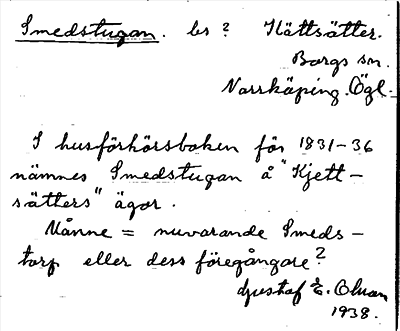 Smedstugan. bs? Kättsätter.
Borgs sn.
Norrköping. Ögl.
I husförhörsboken för 1831-36
nämnes Smedstugan å "Kjett-
sätters" ägor.
Månne = nuvarande Smeds-
torp eller dess föregångare?
Gustaf E. Olsson
1938.